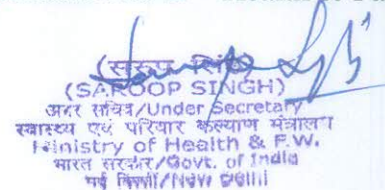 (सरूप सिंह)
(SAROOP SINGH)
अवर सचिव/Under Secretary
स्वास्थ्य एवं परिवार कल्याण मंत्रालय
Ministry of Health & F.W.
भारत सरकार/Govt. of India
नई दिल्ली/New Delhi